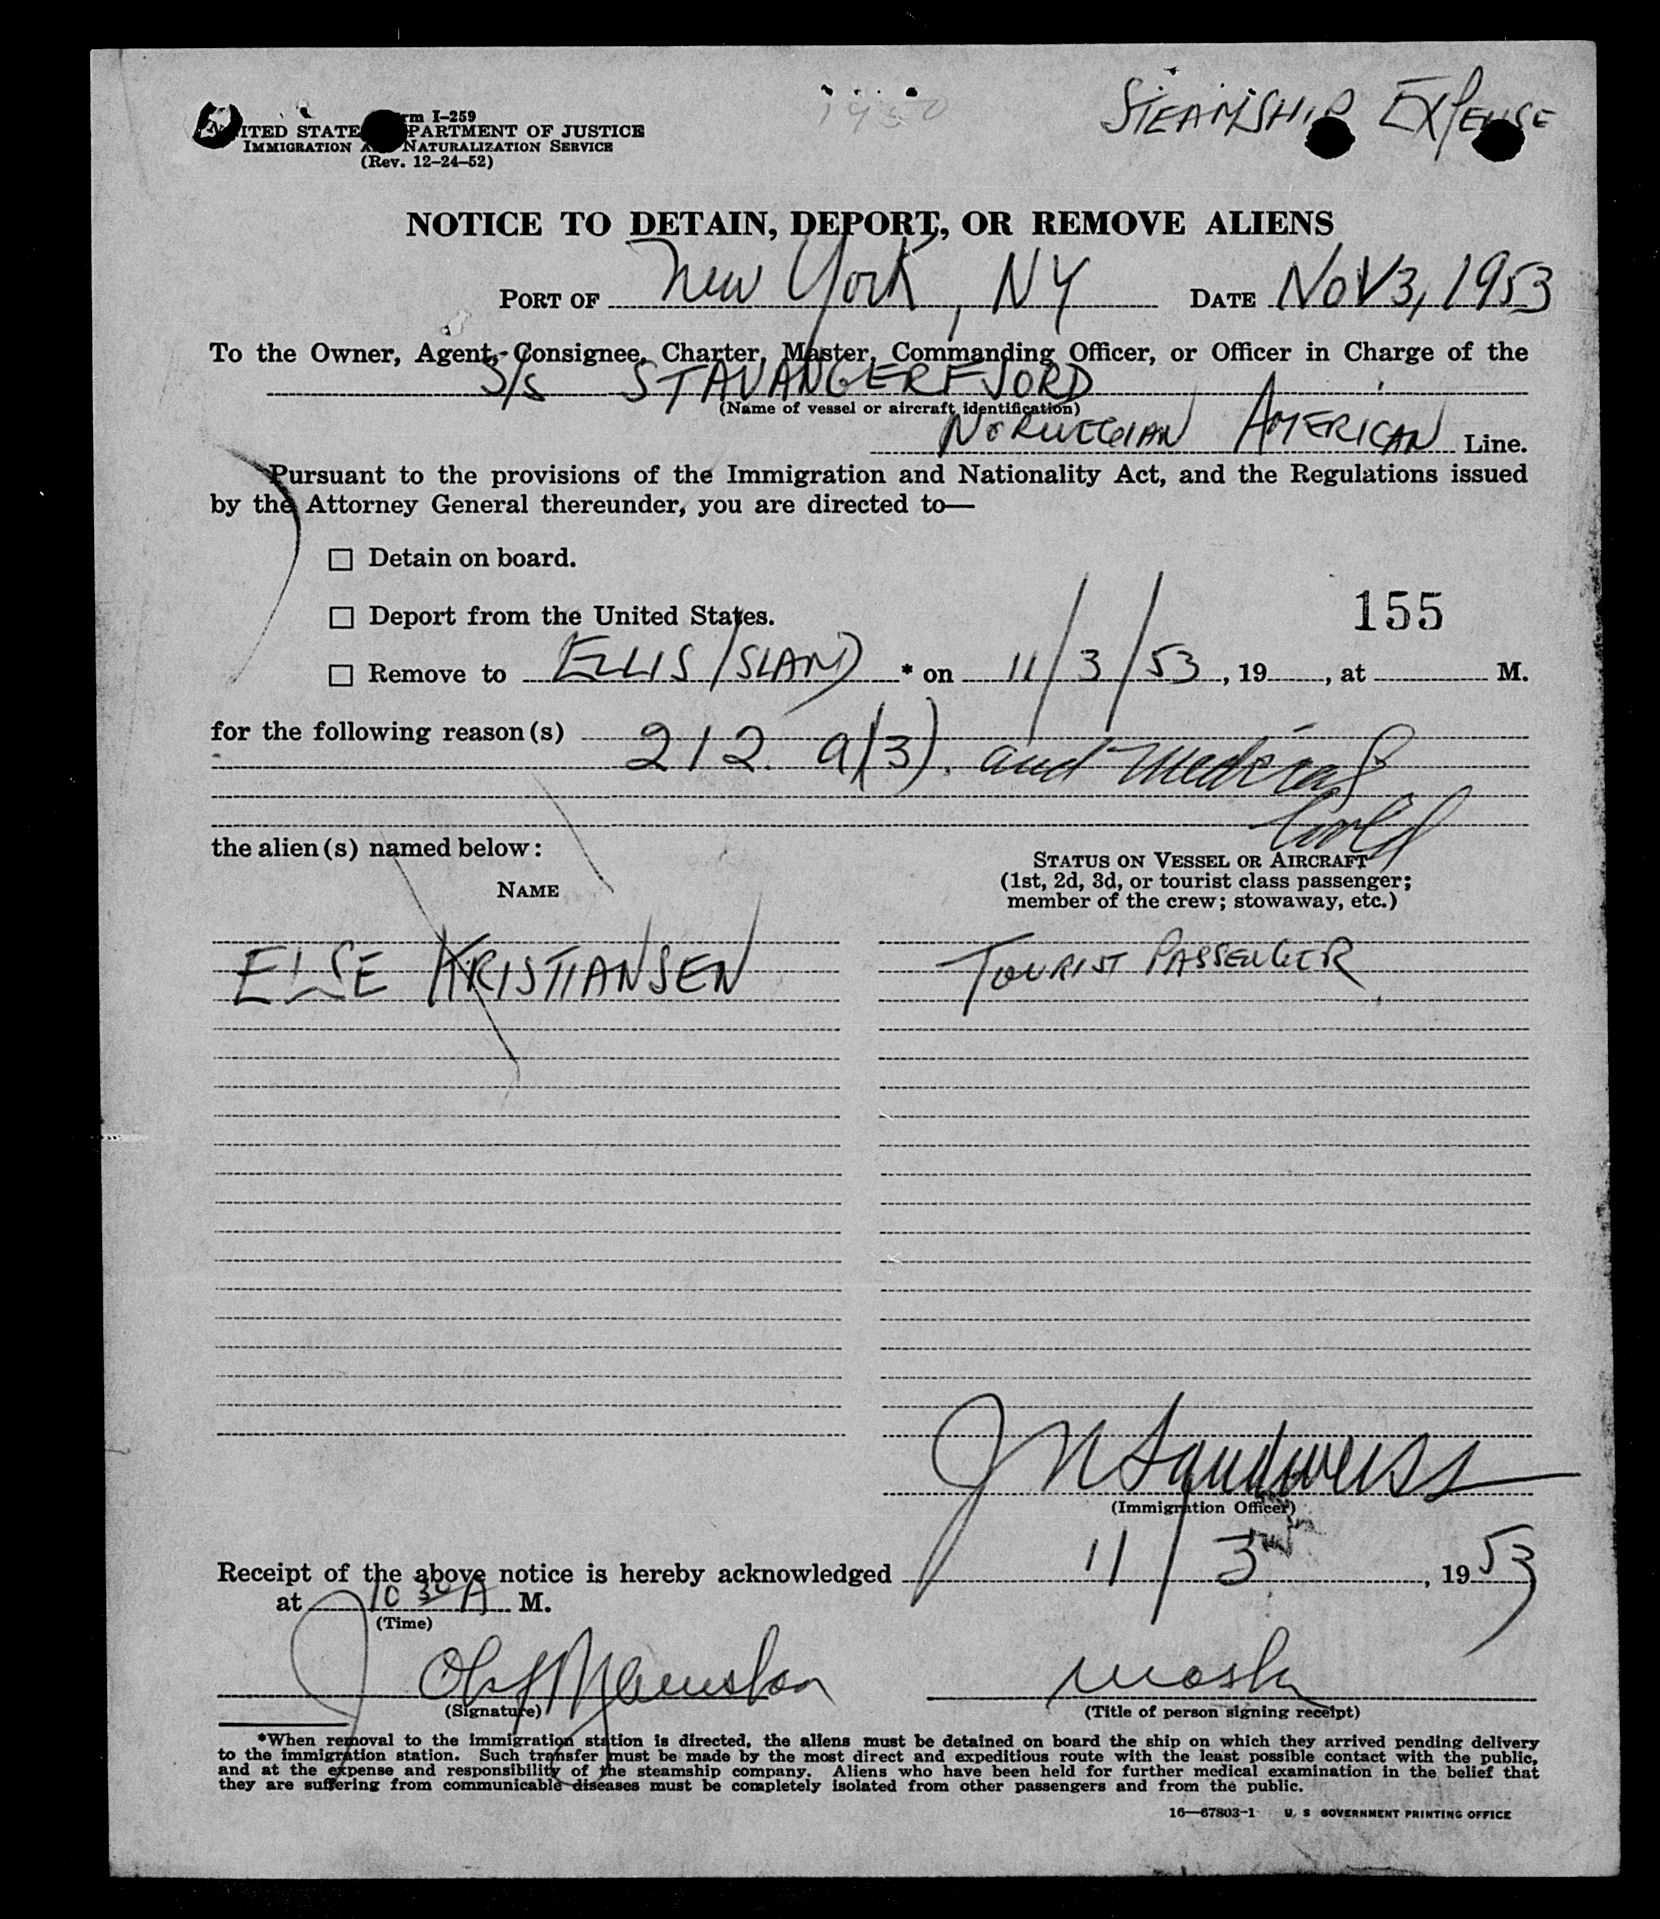 Form I-259
UNITED STATES DEPARTMENT OF JUSTICE
IMMIGRATION AND NATURALIZATION SERVICE
(Rev. 12-24-52)
STEAMSHIP EXPENSE
NOTICE TO DETAIN, DEPORT, OR REMOVE ALIENS
PORT OF New York, NY DATE NOV 3, 1953
To the Owner, Agent, Consignee, Charter, Master, Commanding Officer, or Officer in Charge of the
S/S STAVANGERFJORD
(Name of vessel or aircraft identification)
NORWEGIAN AMERICAN Line.
Pursuant to the provisions of the Immigration and Nationality Act, and the Regulations issued
by the Attorney General thereunder, you are directed to—
☐ Detain on board.
☐ Deport from the United States.
155
☐ Remove to ELLIS ISLAND * on 11/3/53, 19, at M.
for the following reason(s) 212. a(3). and medical
the alien(s) named below:
NAME
STATUS ON VESSEL OR AIRCRAFT
(1st, 2d, 3d, or tourist class passenger;
member of the crew; stowaway, etc.)
ELSE KRISTIANSEN TOURIST PASSENGER
J N Sandweiss
(Immigration Officer)
Receipt of the above notice is hereby acknowledged 11/3, 1953
at 10 30 A M.
(Time)
(Signature)
(Title of person signing receipt)
*When removal to the immigration station is directed, the aliens must be detained on board the ship on which they arrived pending delivery
to the immigration station. Such transfer must be made by the most direct and expeditious route with the least possible contact with the public,
and at the expense and responsibility of the steamship company. Aliens who have been held for further medical examination in the belief that
they are suffering from communicable diseases must be completely isolated from other passengers and from the public.
16—67803-1 U. S GOVERNMENT PRINTING OFFICE